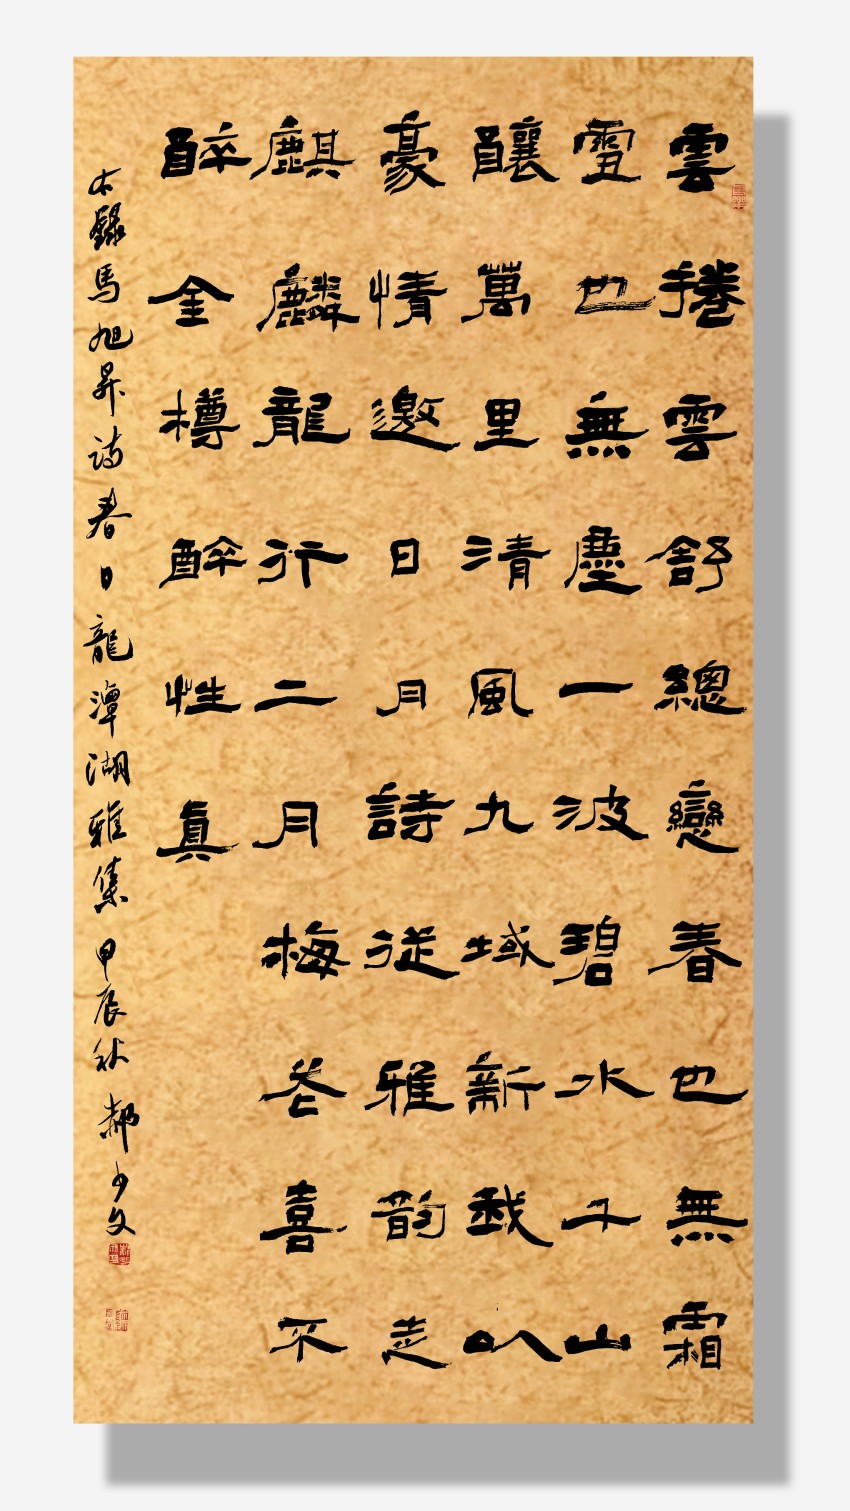 雲捲雲舒總戀春也無霜
雪也無塵一波碧水千山
釀萬里清風九域新我以
豪情邀日月詩從雅韵走
麒麟龍行二月梅花喜不
醉金樽醉性真
右錄馬旭昇詩春日龍潭湖雅集甲辰秋郝少文